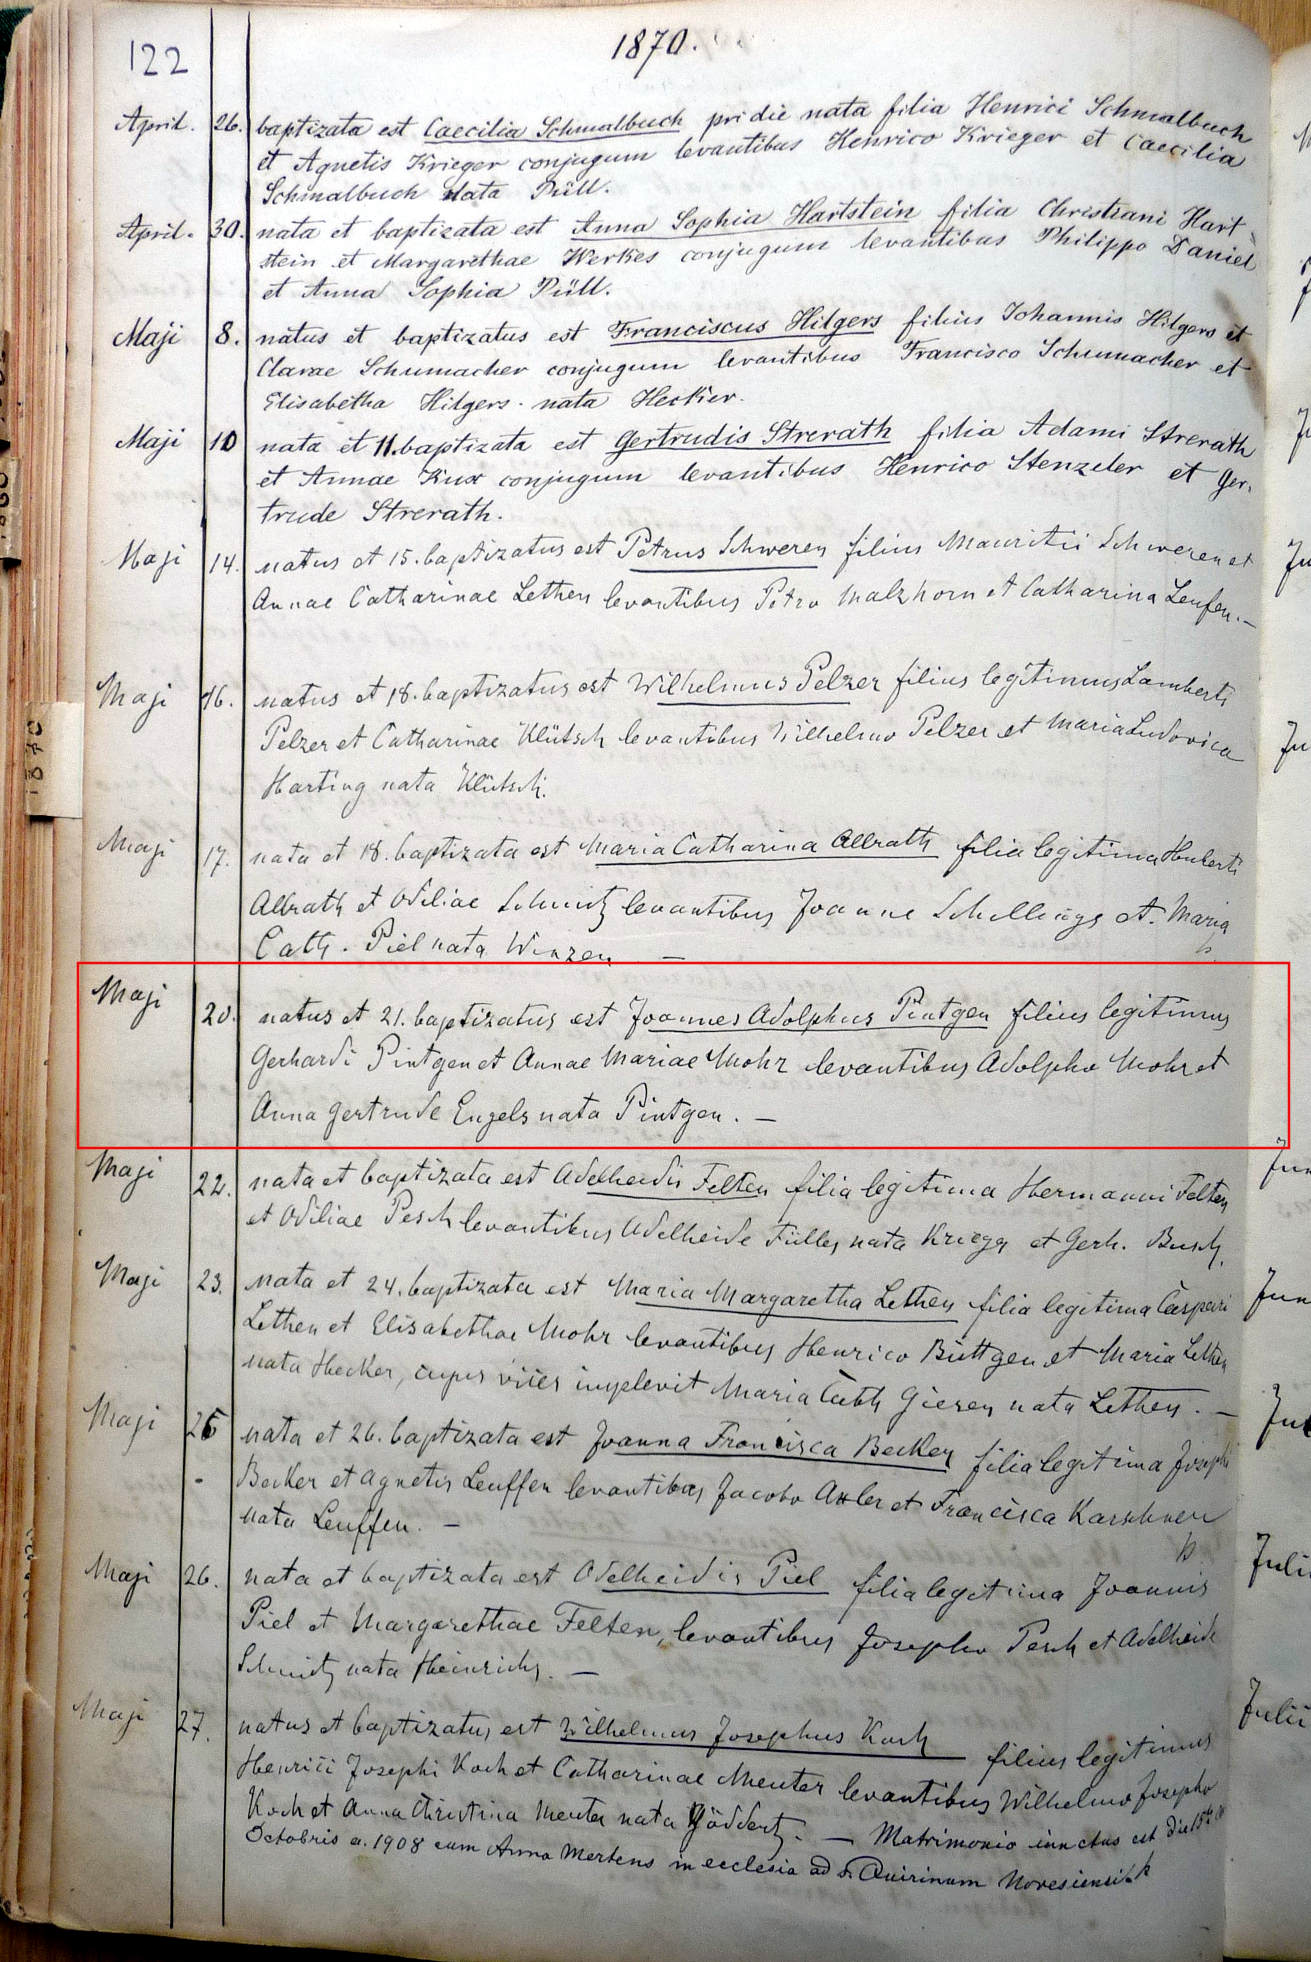 122
1870.
April. 26. baptizata est Caecilia Schmalbuch pridie nata filia Henrici Schmalbuch
et Agnetis Krieger conjugum levantibus Henrico Krieger et Caecilia
Schmalbuch nata Püll.
April. 30. nata et baptizata est Anna Sophia Hartstein filia Christiani Hart-
stein et Margarethae Werkes conjugum levantibus Philippo Daniel
et Anna Sophia Püll.
Maji 8. natus et baptizatus est Franciscus Hilgers filius Johannis Hilgers et
Clarae Schumacher conjugum levantibus Francisco Schumacher et
Elisabetha Hilgers. nata
Maji 10 nata et 11. baptizata est Gertrudis Strerath filia Adami Strerath
et Annae Kux conjugum levantibus Henrico Stenzeler et Ger,
trude Strerath.
Maji 14. natus et 15. baptizatus est Petrus Schweren filius Mauritii Schweren et
Annae Catharinae Lethen levantibus Petro Malzkorn et Catharina Leufen. —
Maji 16. natus et 18. baptizatus est Wilhelmus Pelzer filius legitimus Lamberti
Pelzer et Catharinae Klütsch levantibus Wilhelmo Pelzer et Maria Ludovica
Harting nata Klütsch.
Maji 17. nata et 18. baptizata est Maria Catharina Allrath filia legitima Huberti
Allrath et Odiliae Schmitz levantibus Joanne Schellings et Maria
Cath. Piel nata Winzen —
Maji 20. natus et 21. baptizatus est Joannes Adolphus Pintgen filius legitimus
Gerhardi Pintgen et Annae Mariae Mohr levantibus Adolpho Mohr et
Anna Gertrude Engels nata Pintgen. —
Maji 22. nata et baptizata est Adelheidis Felten filia legitima Hermanni Felten
et Odiliae Pesch levantibus Adelheide Fülles nata et Gerh. Busch.
Maji 23. nata et 24. baptizata est Maria Margaretha Lethen filia legitima Caspari
Lethen et Elisabethae Mohr levantibus Henrico Büttgen et Maria Lethen
nata Hecker, cujus vices implevit Maria Cath Giesen nata Lethen. —
Maji 25 nata et 26. baptizata est Joanna Francisca Becker filia legitima Josephi
Becker et Agnetis Leuffen levantibus Jacobo et Francisca Karschnen
nata Leuffen. —
Maji 26. nata et baptizata est Adelheidis Piel filia legitima Joannis
Piel et Margarethae Felten, levantibus Josepho Pesch et Adelheide
Schmitz nata Heinrichs. —
Maji 27. natus et baptizatus est Wilhelmus Josephus Koch filius legitimus
Henrici Josephi Koch et Catharinae Meuter levantibus Wilhelmo Josepho
Koch et Anna Christina Meuter nata Göddertz. — Matrimonio iunctus est die
Octobris a. 1908 cum Anna Mertens in ecclesia ad s. Quirinum Novesiensi
1870